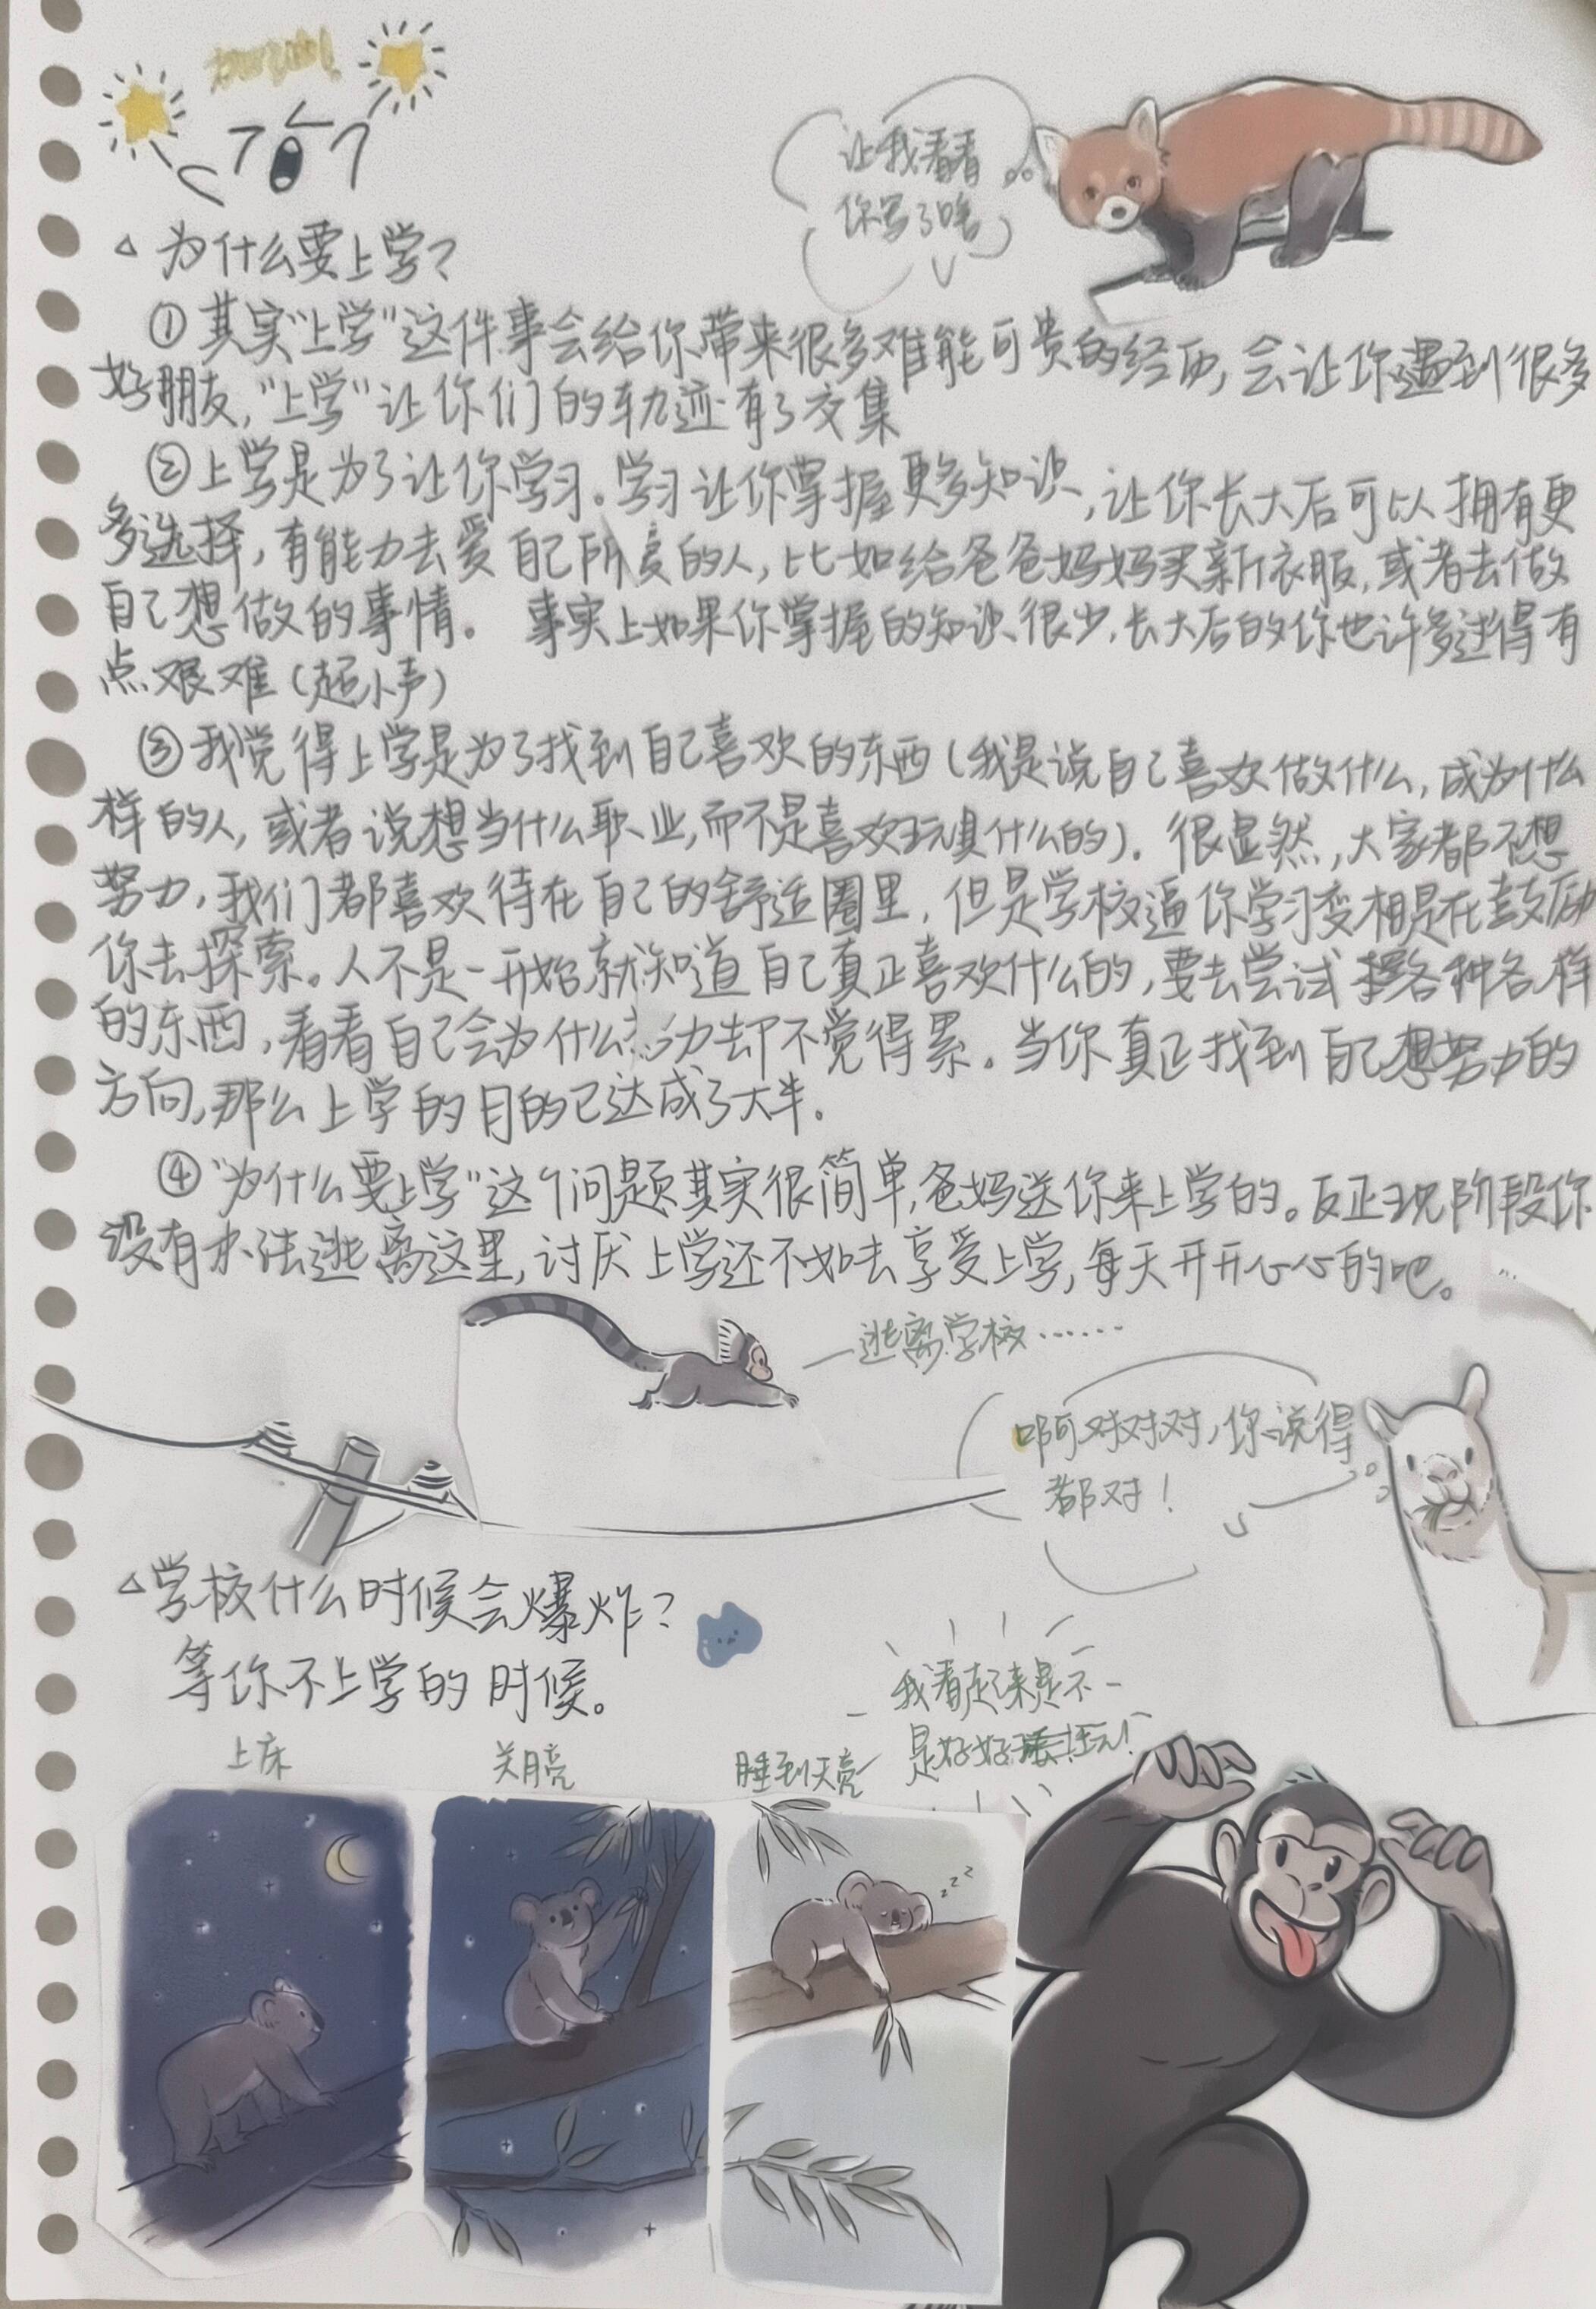 让我看看
你写了啥
△ 为什么要上学?
①其实"上学"这件事会给你带来很多难能可贵的经历,会让你遇到很多
好朋友,"上学"让你们的轨迹有了交集
②上学是为了让你学习。学习让你掌握更多知识,让你长大后可以拥有更
多选择,有能力去爱自己所爱的人,比如给爸爸妈妈买新衣服,或者去做
自己想做的事情。 事实上如果你掌握的知识很少,长大后的你也许多过得有
点艰难(超小声)
③我觉得上学是为了找到自己喜欢的东西(我是说自己喜欢做什么,成为什么
样的人,或者说想当什么职业,而不是喜欢玩具什么的)。很显然,大家都不想
努力,我们都喜欢待在自己的舒适圈里,但是学校逼你学习变相是在鼓励
你去探索。人不是一开始就知道自己真正喜欢什么的,要去尝试各种各样
的东西,看看自己会为什么努力却不觉得累。当你真正找到自己想努力的
方向,那么上学的目的已达成了大半。
④"为什么要上学"这个问题其实很简单,爸妈送你来上学的。反正现阶段你
没有办法逃离这里,讨厌上学还不如去享受上学,每天开开心心的吧。
—逃离学校……
啊对对对,你说得
都对!
△学校什么时候会爆炸?
等你不上学的时候。
我看起来是不
是好好玩!
上床
关月亮
睡到天亮
zzz